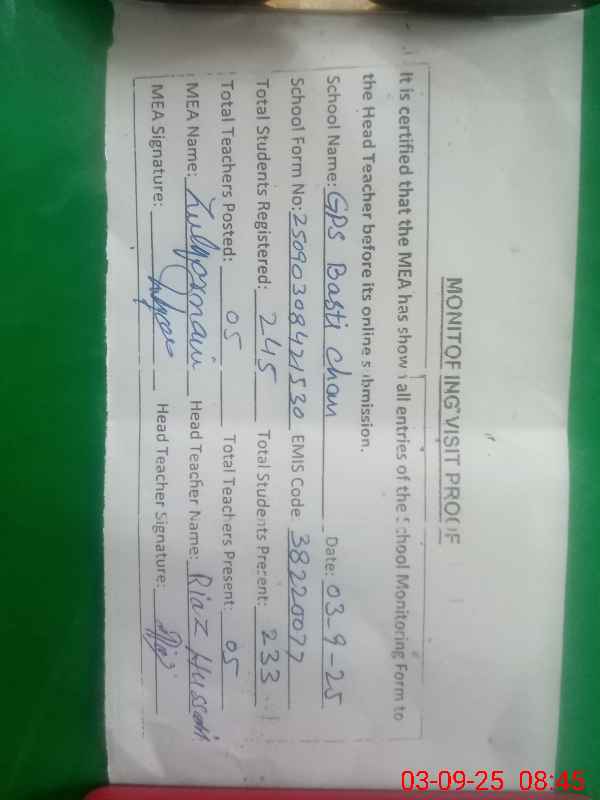 MONITORING VISIT PROOF
It is certified that the MEA has shown all entries of the School Monitoring Form to
the Head Teacher before its online submission.
School Name: GPS Basti Chan Date: 03-9-25
School Form No: 25090308421530 EMIS Code 38220077
Total Students Registered: 245 Total Students Present: 233
Total Teachers Posted: 05 Total Teachers Present: 05
MEA Name: Head Teacher Name: Riaz Hussain
MEA Signature: Head Teacher Signature:
03-09-25 08:45